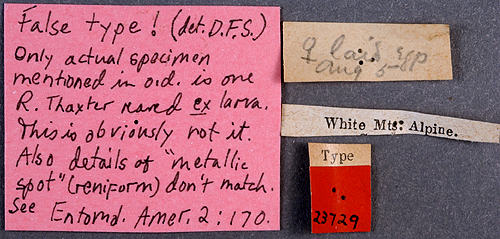 False type! (det. D.F.S.)
Only actual specimen
mentioned in o.d. is one
R. Thaxter reared ex larva.
This is obviously not it.
Also details of "metallic
spot" (reniform) don't match.
See Entomol. Amer. 2:170.
♀ laid egg
Aug 5-
White Mts: Alpine.
Type
23729